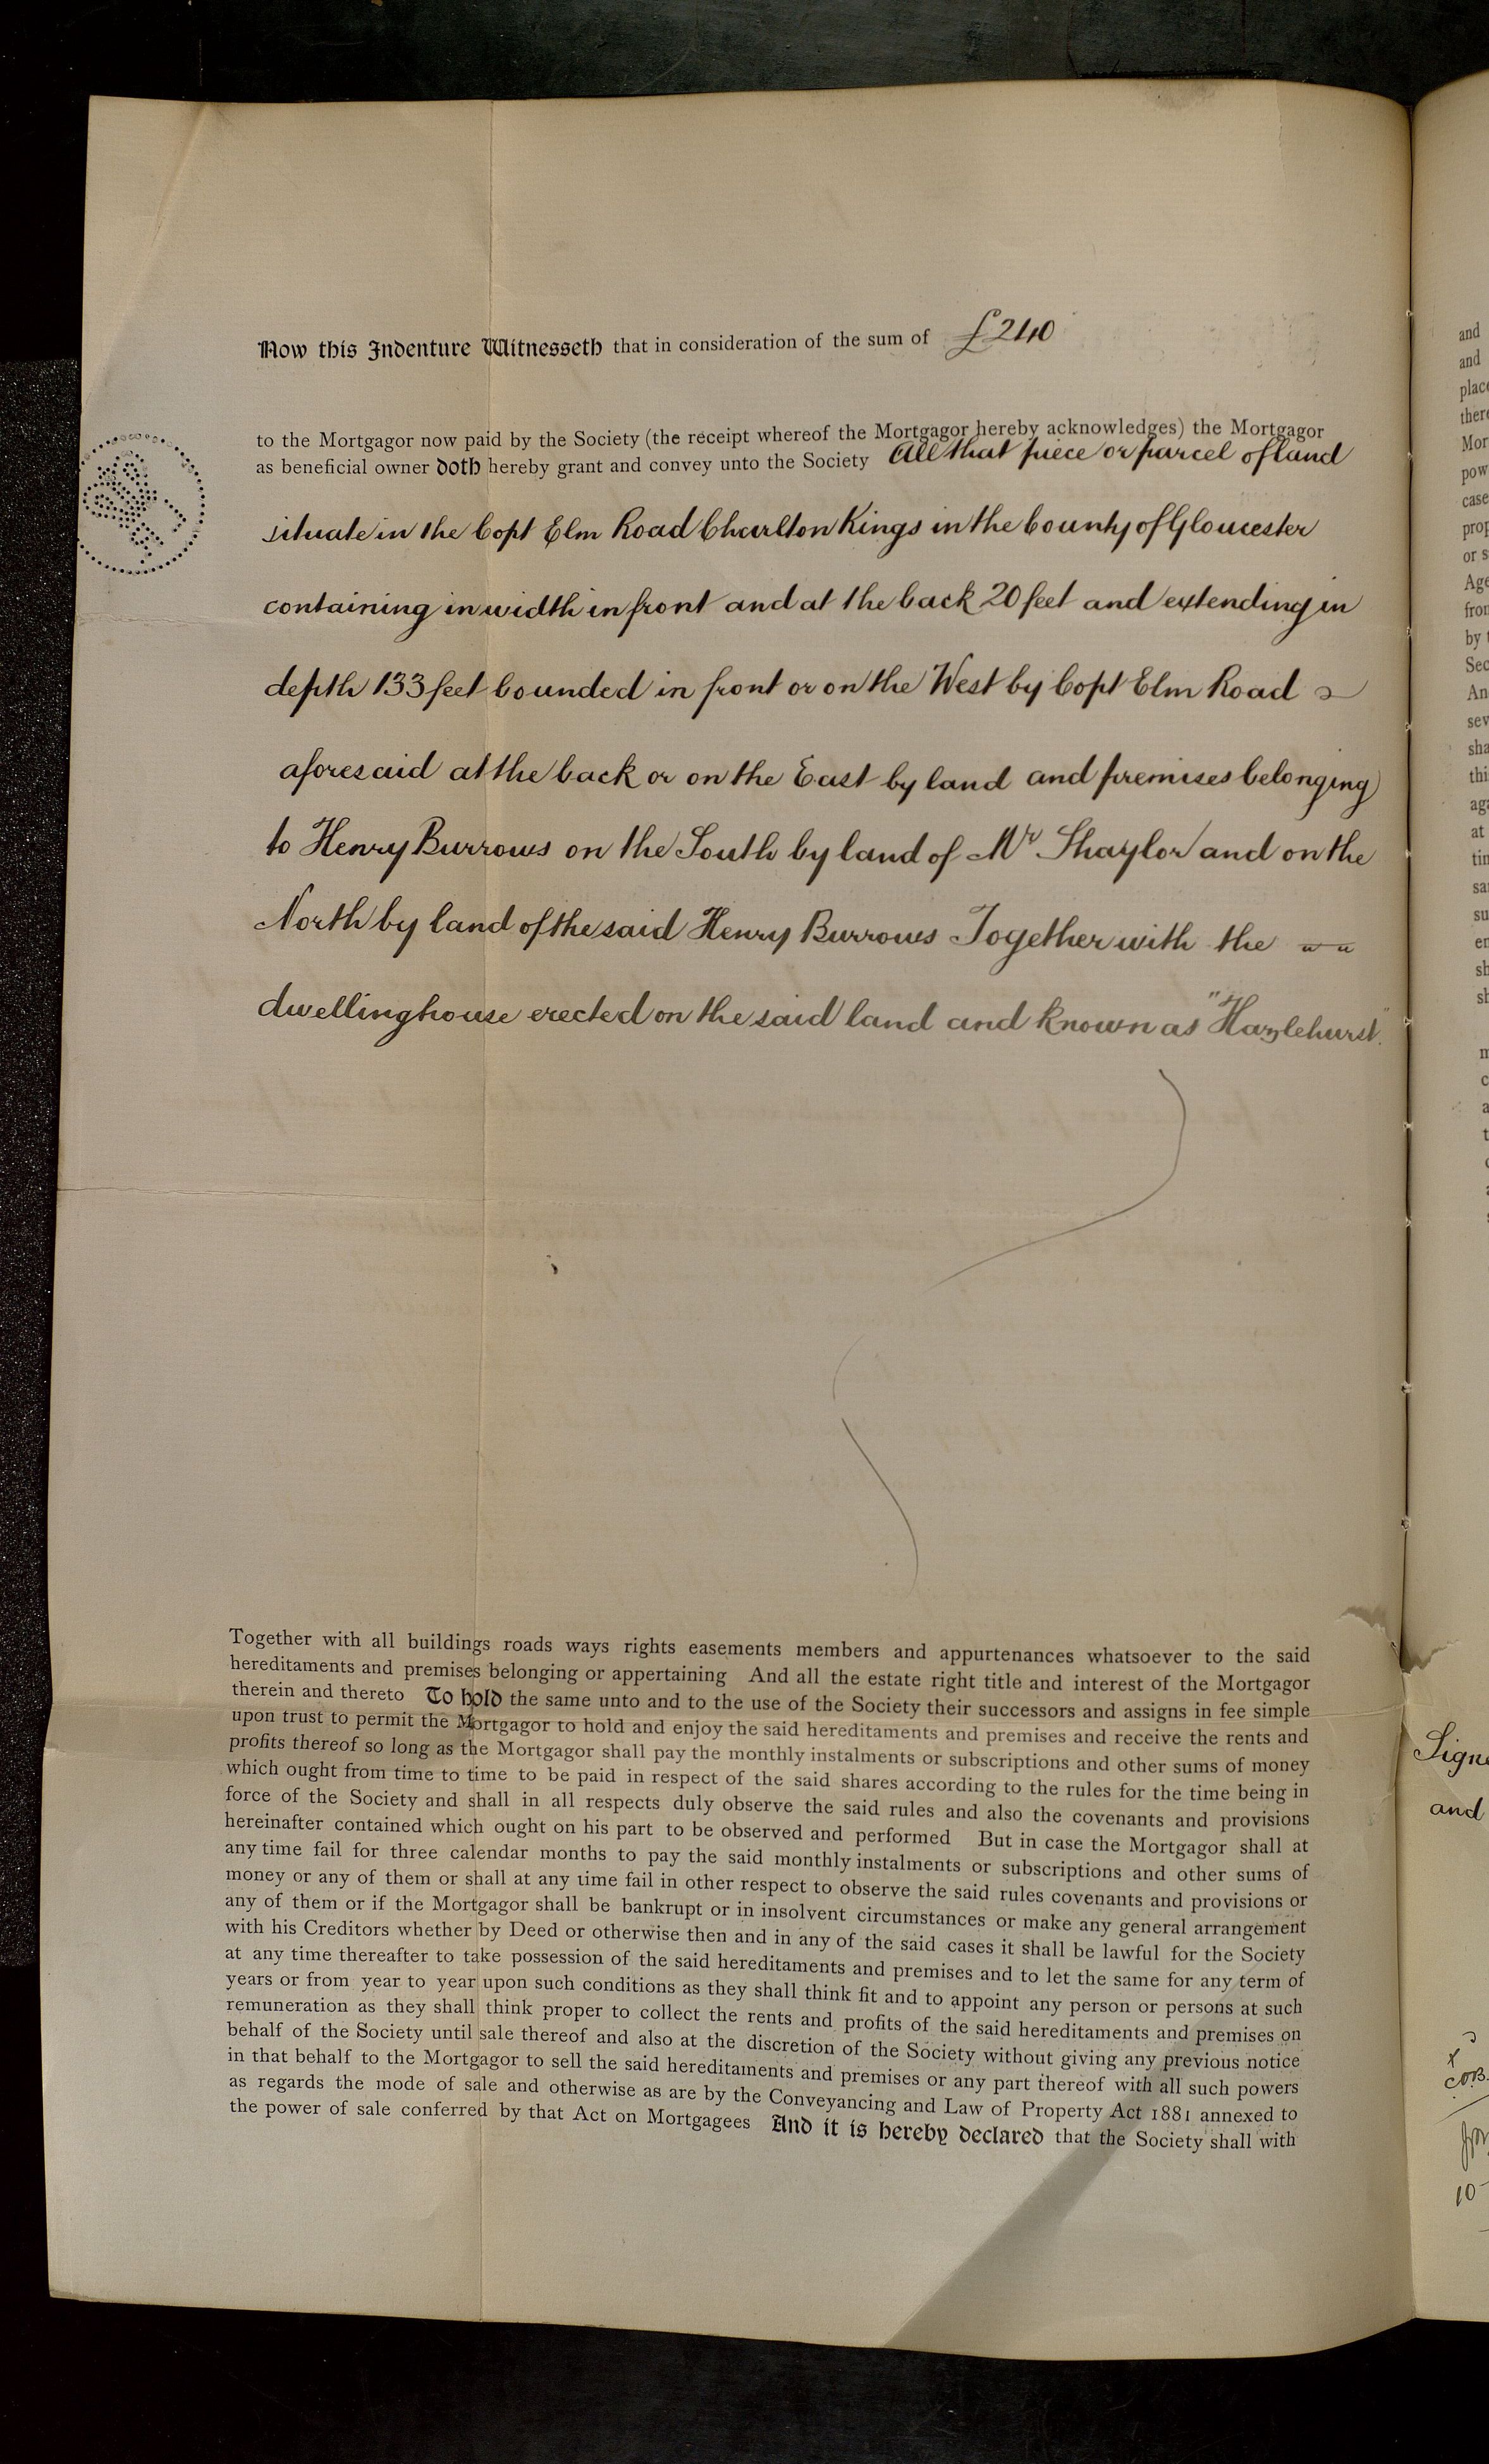 Now this Indenture Witnesseth that in consideration of the sum of £240
to the Mortgagor now paid by the Society (the receipt whereof the Mortgagor hereby acknowledges) the Mortgagor
as beneficial owner doth hereby grant and convey unto the Society All that piece or parcel of land
situate in the Copt Elm Road Charlton Kings in the County of Gloucester
containing in width in front and at the back 20 feet and extending in
depth 133 feet bounded in front or on the West by Copt Elm Road
aforesaid at the back or on the East by land and premises belonging
to Henry Burrows on the South by land of Mr Shaylor and on the
North by land of the said Henry Burrows Together with the
dwellinghouse erected on the said land and known as "Hazlehurst".
Together with all buildings roads ways rights easements members and appurtenances whatsoever to the said
hereditaments and premises belonging or appertaining And all the estate right title and interest of the Mortgagor
therein and thereto To hold the same unto and to the use of the Society their successors and assigns in fee simple
upon trust to permit the Mortgagor to hold and enjoy the said hereditaments and premises and receive the rents and
profits thereof so long as the Mortgagor shall pay the monthly instalments or subscriptions and other sums of money
which ought from time to time to be paid in respect of the said shares according to the rules for the time being in
force of the Society and shall in all respects duly observe the said rules and also the covenants and provisions
hereinafter contained which ought on his part to be observed and performed But in case the Mortgagor shall at
any time fail for three calendar months to pay the said monthly instalments or subscriptions and other sums of
money or any of them or shall at any time fail in other respect to observe the said rules covenants and provisions or
any of them or if the Mortgagor shall be bankrupt or in insolvent circumstances or make any general arrangement
with his Creditors whether by Deed or otherwise then and in any of the said cases it shall be lawful for the Society
at any time thereafter to take possession of the said hereditaments and premises and to let the same for any term of
years or from year to year upon such conditions as they shall think fit and to appoint any person or persons at such
remuneration as they shall think proper to collect the rents and profits of the said hereditaments and premises on
behalf of the Society until sale thereof and also at the discretion of the Society without giving any previous notice
in that behalf to the Mortgagor to sell the said hereditaments and premises or any part thereof with all such powers
as regards the mode of sale and otherwise as are by the Conveyancing and Law of Property Act 1881 annexed to
the power of sale conferred by that Act on Mortgagees And it is hereby declared that the Society shall with
and
and
at
and